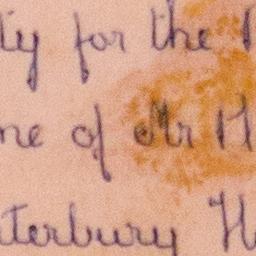 ty for the
ne of Mr H
terbury H